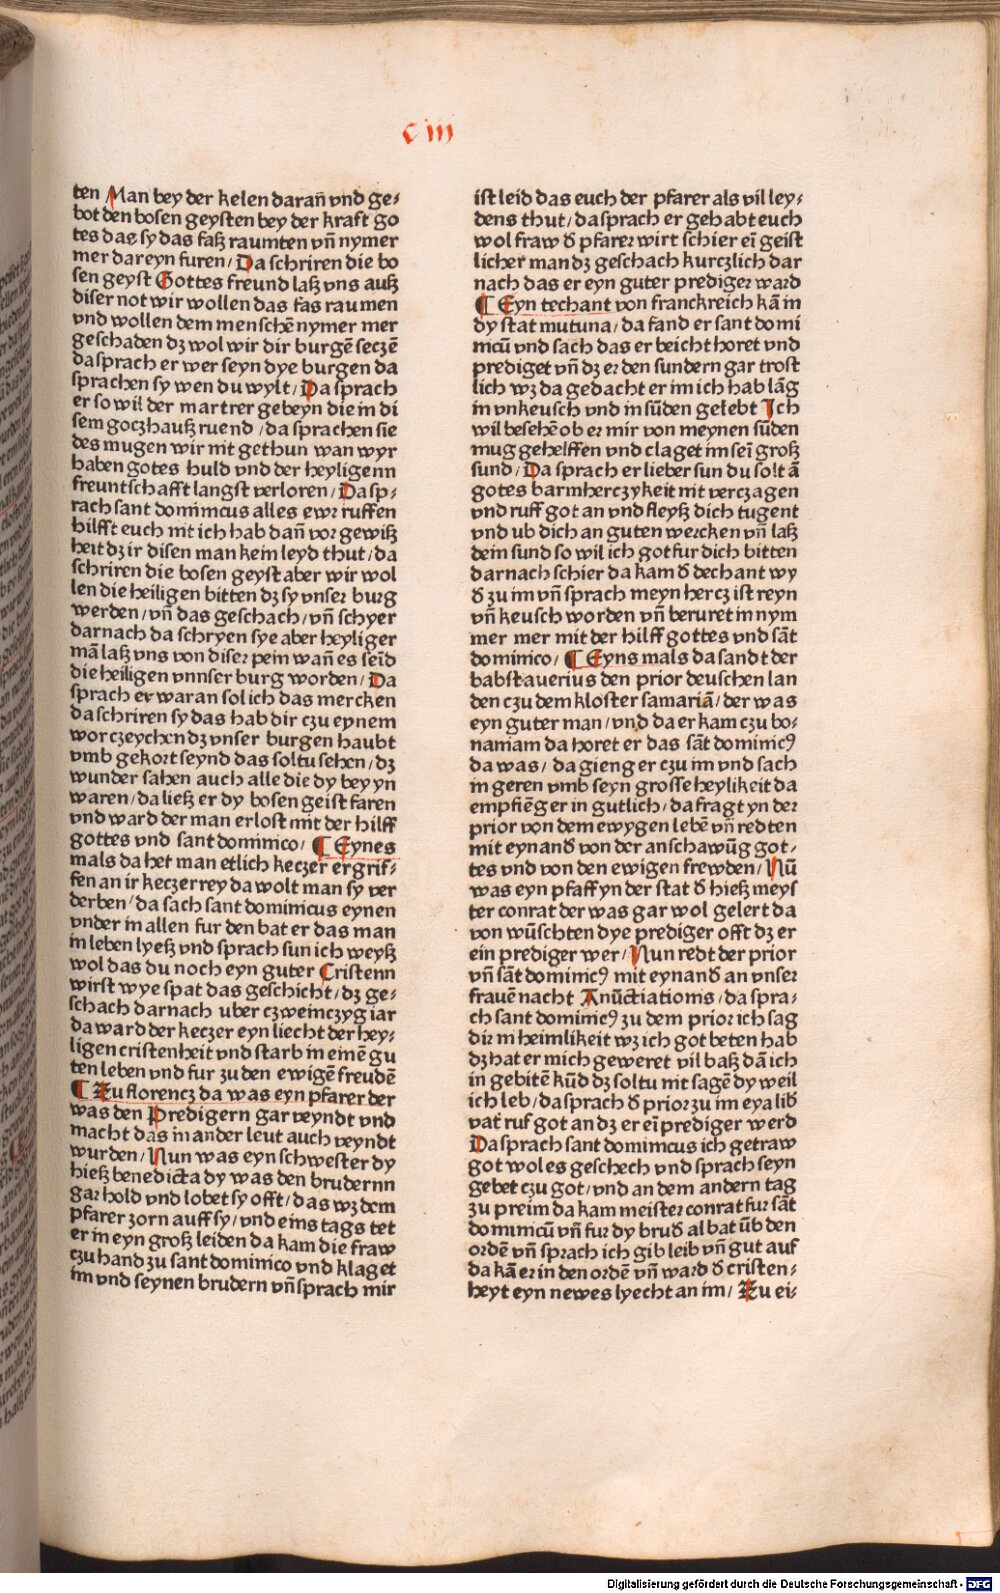 ciii
ten Man bey der kelen daran̄ vnd ge⸗
bot den bosen geysten bey der kraft go
tes das sy das faß raumten vn̄ nymer
mer dar eyn furen/ Da schriren die bo
sen geyst Gottes freund laß vns auß
diser not wir wollen das fas raumen
vnd wollen dem menschē nymer mer
geschaden dz wol wir dir burgē seczē
da sprach er wer seyn dye burgen da
sprachen sy wen du wylt/ Da sprach
er so wil der martrer gebeyn die in di
sem goczhauß ruend/da sprachen sie
des mugen wir nit gethun wan wyr
haben gotes huld vnd der heyligenn
freuntschafft langst verloren/ Da sp⸗
rach sant dominicus alles ewr ruffen
hilfft euch nit ich hab dan̄ vor gewiß
heit dz ir disen man kein leyd thut/da
schriren die bosen geyst aber wir wol
len die heiligen bitten dz sy vnser burg
werden/vn̄ das geschach/vn̄ schyer
darnach da schryen sye aber heyliger
mā laß vns von diser pein wan̄ es seīd
die heiligen vnnser burg worden/ Da
sprach er waran sol ich das mercken
da schriren sy das hab dir czu eynem
worczeychen dz vnser burgen haubt
vmb gekort seynd das soltu sehen/dz
wunder sahen auch alle die dy bey yn
waren/da ließ er dy bosen geist faren
vnd ward der man erlost mit der hilff
gottes vnd sant dominico/ ¶ Eynes
mals da het man etlich keczer ergrif⸗
fen an ir keczerrey da wolt man sy ver
derben/da sach sant dominicus eynen
vnder in allen fur den bat er das man
in leben lyeß vnd sprach sun ich weyß
wol das du noch eyn guter Cristenn
wirst wye spat das geschicht/dz ge⸗
schach darnach uber czweinczyg iar
da ward der keczer eyn liecht der hey⸗
ligen cristenheit vnd starb in einē gu
ten leben vnd fur zu den ewigē freudē
¶ Zu florencz da was eyn pfarer der
was den Predigern gar veyndt vnd
macht das in ander leut auch veyndt
wurden/ Nun was eyn schwester dy
hieß benedicta dy was den brudernn
gar hold vnd lobet sy offt/das wz dem
pfarer zorn auff sy/vnd eins tags tet
er in eyn groß leiden da kam die fraw
czu hand zu sant dominico vnd klaget
im vnd seynen brudern vn̄ sprach mir
ist leid das euch der pfarer als vil ley⸗
dens thut/da sprach er gehabt euch
wol fraw ð pfarer wirt schier eī geist
licher man dz geschach kurczlich dar
nach das er eyn guter prediger ward
¶ Eyn techant von franckreich kā in
dy stat mutuna/da fand er sant domi
nicū vnd sach das er beicht horet vnd
prediget vn̄ dz er den sundern gar trost
lich wz da gedacht er im ich hab lāg
in vnkeusch vnd in sūden gelebt Ich
wil besehē ob er mir von meynen sūden
mug gehelffen vnd claget im seī groß
sund/ Da sprach er lieber sun du solt ā
gotes barmherczykeit nit verczagen
vnd ruff got an vnd fleyß dich tugent
vnd ub dich an guten wercken vn̄ laß
dein sund so wil ich got fur dich bitten
darnach schier da kam ð dechant wy
ð zu im vn̄ sprach meyn hercz ist reyn
vn̄ keusch worden vn̄ beruret in nym
mer mer mit der hilff gottes vnd sāt
dominico/ ¶ Eyns mals da sandt der
babst auerius den prior deuschen lan
den czu dem kloster samariā/der was
eyn guter man/vnd da er kam czu bo⸗
naniam da horet er das sāt dominicꝰ
da was/da gieng er czu im vnd sach
in geren vmb seyn grosse heylikeit da
empfiēg er in gutlich/da fragt yn der
prior von dem ewygen lebē vn̄ redten
mit eynanð von der anschawūg got⸗
tes vnd von den ewigen frewden/ Nū
was eyn pfaff yn der stat ð hieß meys
ter conrat der was gar wol gelert da
von wūschten dye prediger offt dz er
ein prediger wer/ Nun redt der prior
vn̄ sāt dominicꝰ mit eynanð an vnser
frauē nacht Anūctiationis/da spra⸗
ch sant dominicꝰ zu dem prior ich sag
dir in heimlikeit wz ich got beten hab
dz hat er mich geweret vil baß dā ich
in gebitē kūd dz soltu nit sagē dy weil
ich leb/da sprach ð prior zu im eya lib
vat ruf got an dz er eī prediger werd
Da sprach sant dominicus ich getraw
got wol es geschech vnd sprach seyn
gebet czu got/vnd an dem andern tag
zu preim da kam meister conrat fur sāt
dominicū vn̄ fur dy bruð al bat ūb den
ordē vn̄ sprach ich gib leib vn̄ gut auf
da kā er in den ordē vn̄ ward ð cristen⸗
heyt eyn newes lyecht an im/ Zu ei⸗
Digitalisierung gefördert durch die Deutsche Forschungsgemeinschaft - DFG